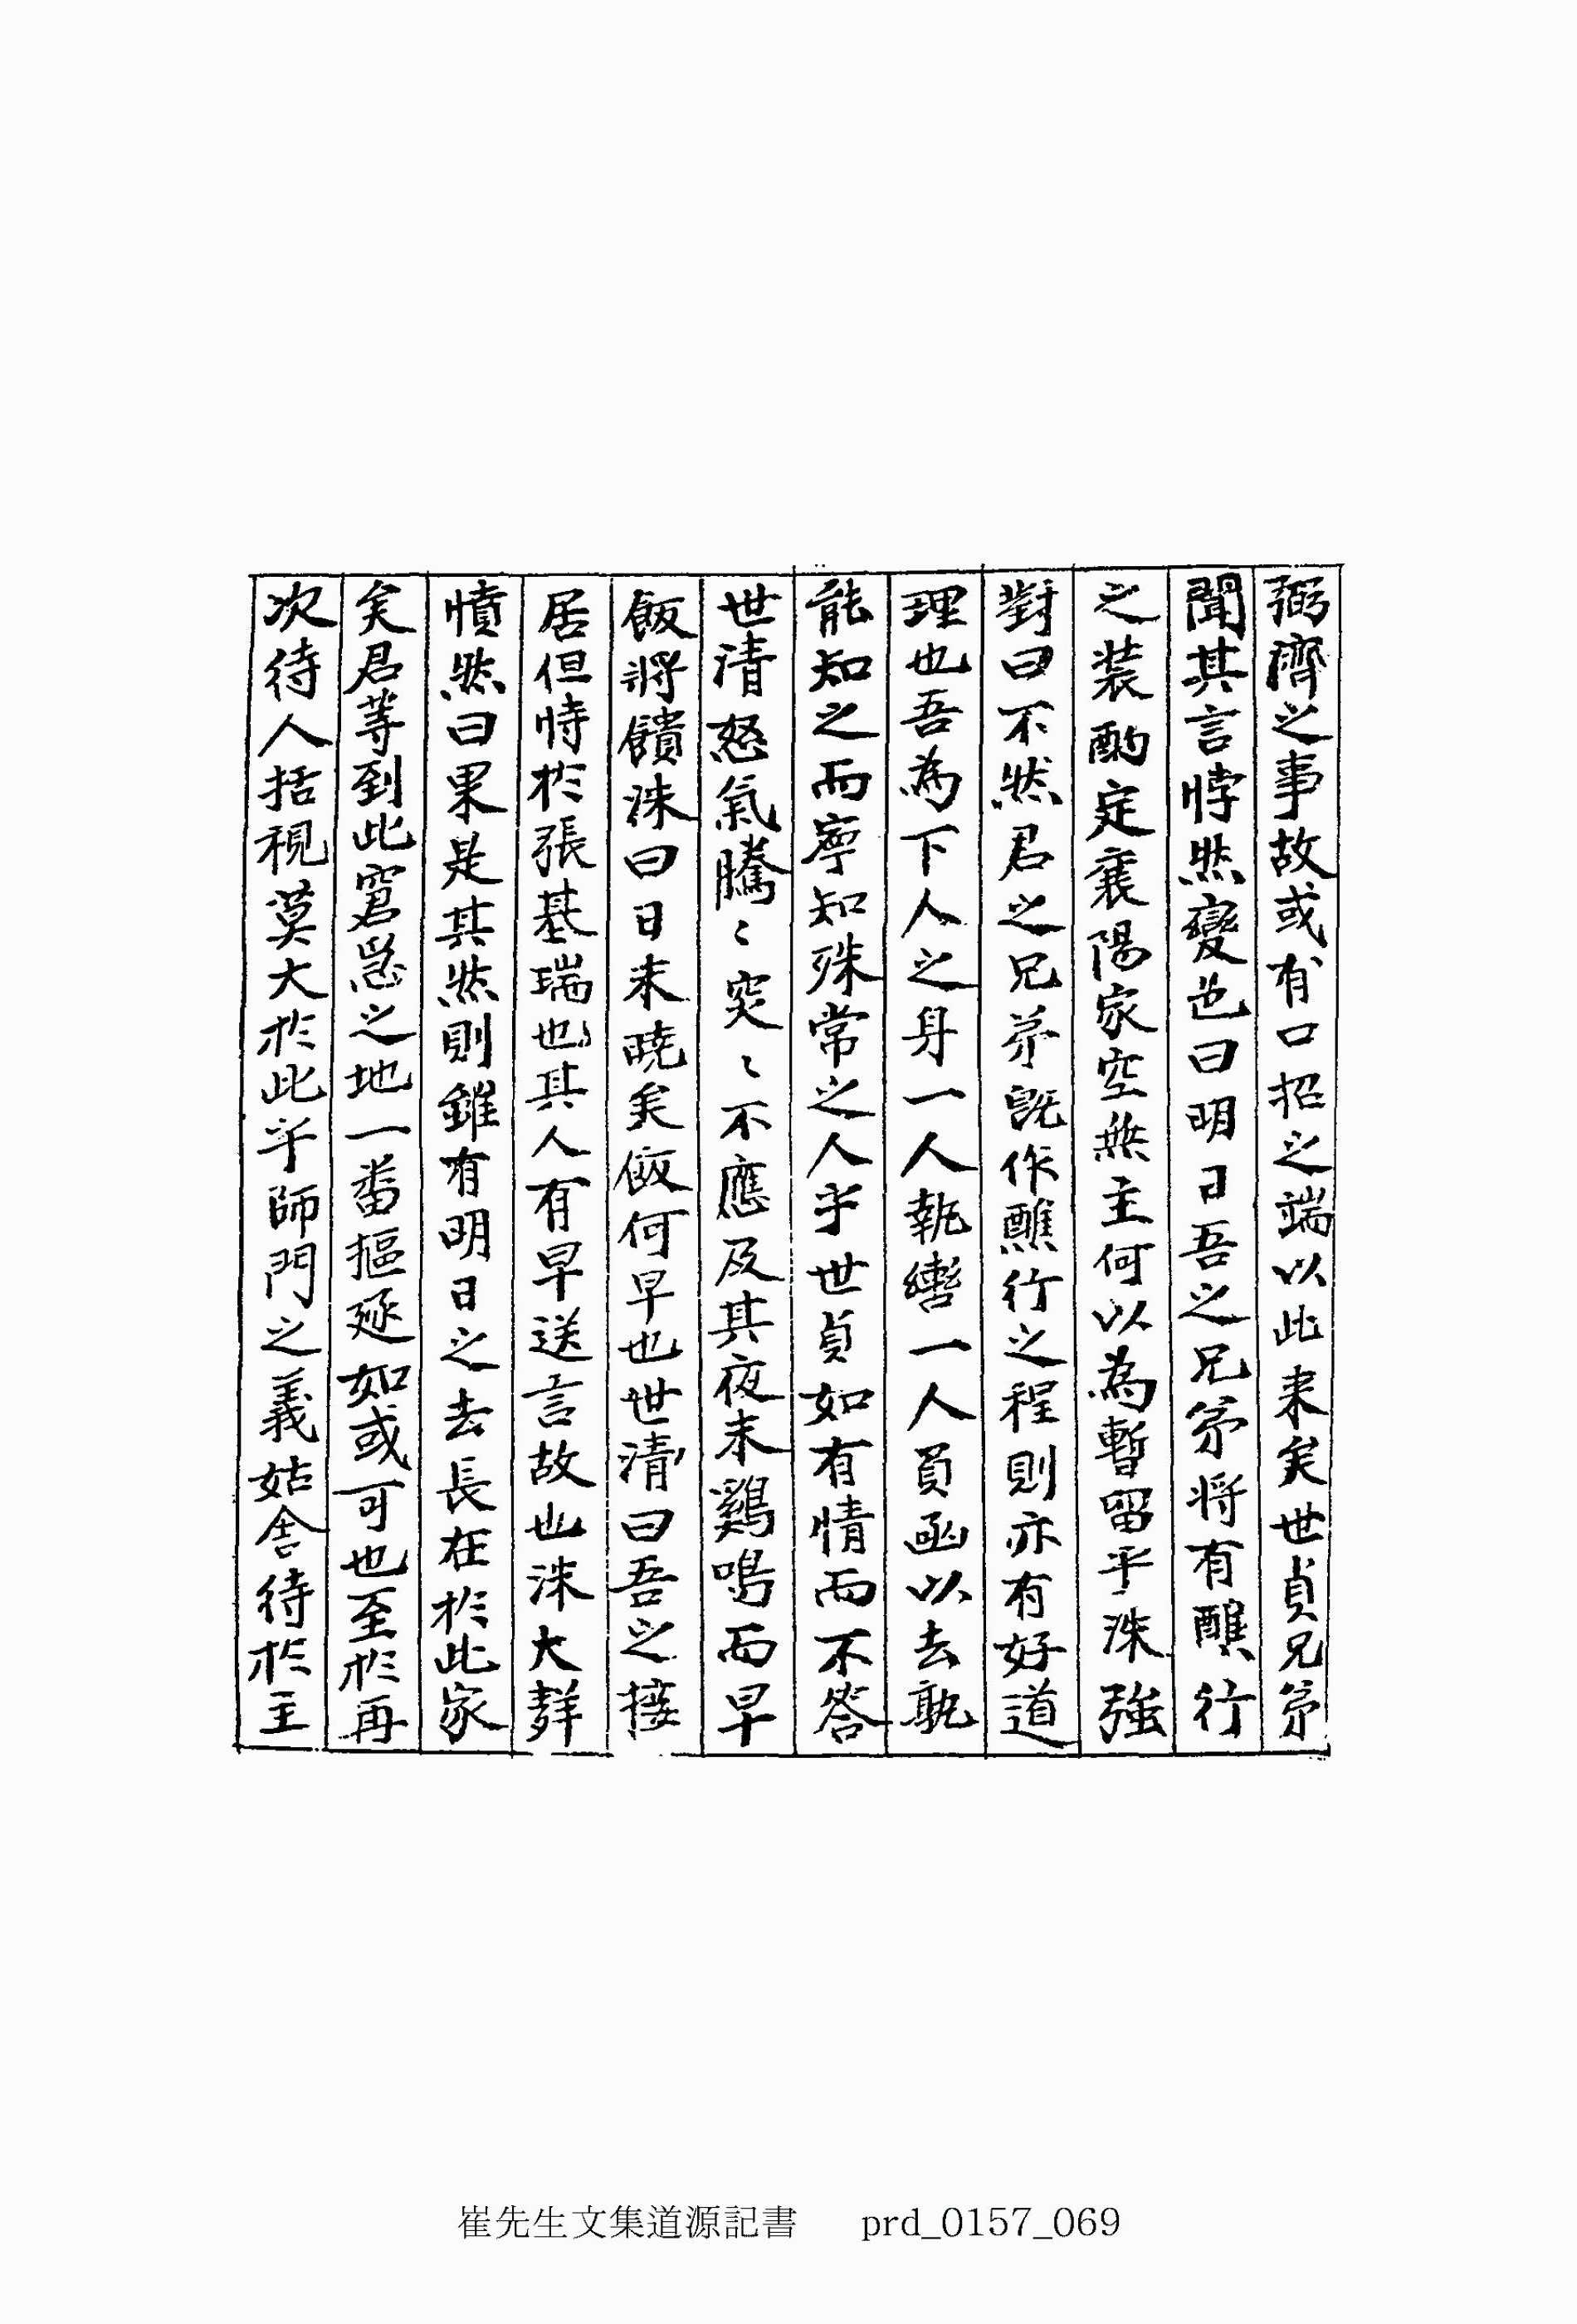 弼濟之事故或有口招之端以此来矣世貞兄弟
聞其言悖然變色曰明日吾之兄弟将有醮行
之装酌定襄陽家空無主何以為暫留乎洙強
對曰不然君之兄弟旣作醮行之程則亦有好道
理也吾為下人之身一人執轡一人負函以去孰
能知之而寧知殊常之人乎世貞如有情而不答
世清怒氣騰〻突〻不應及其夜未鷄鳴而早
飯將饋洙曰日未曉矣飯何早也世清曰吾之接
居但恃於張基瑞也其人有早送言故也洙大
憤然曰果是其然則雖有明日之去長在於此家
矣君等到此窘急之地一番摳逐如或可也至於再
次待人括視莫大於此乎師門之義姑舍待於主
崔先生文集道源記書 prd_0157_069